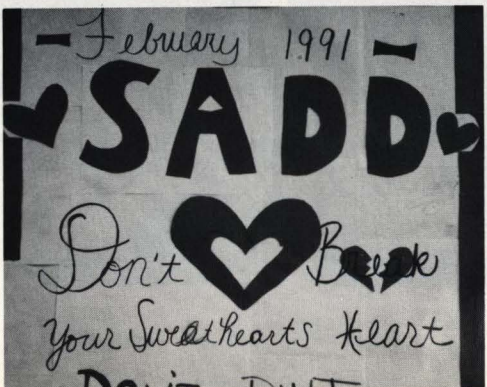 - February 1991 -
SADD
Don't Break
Your Sweathearts Heart
Don't